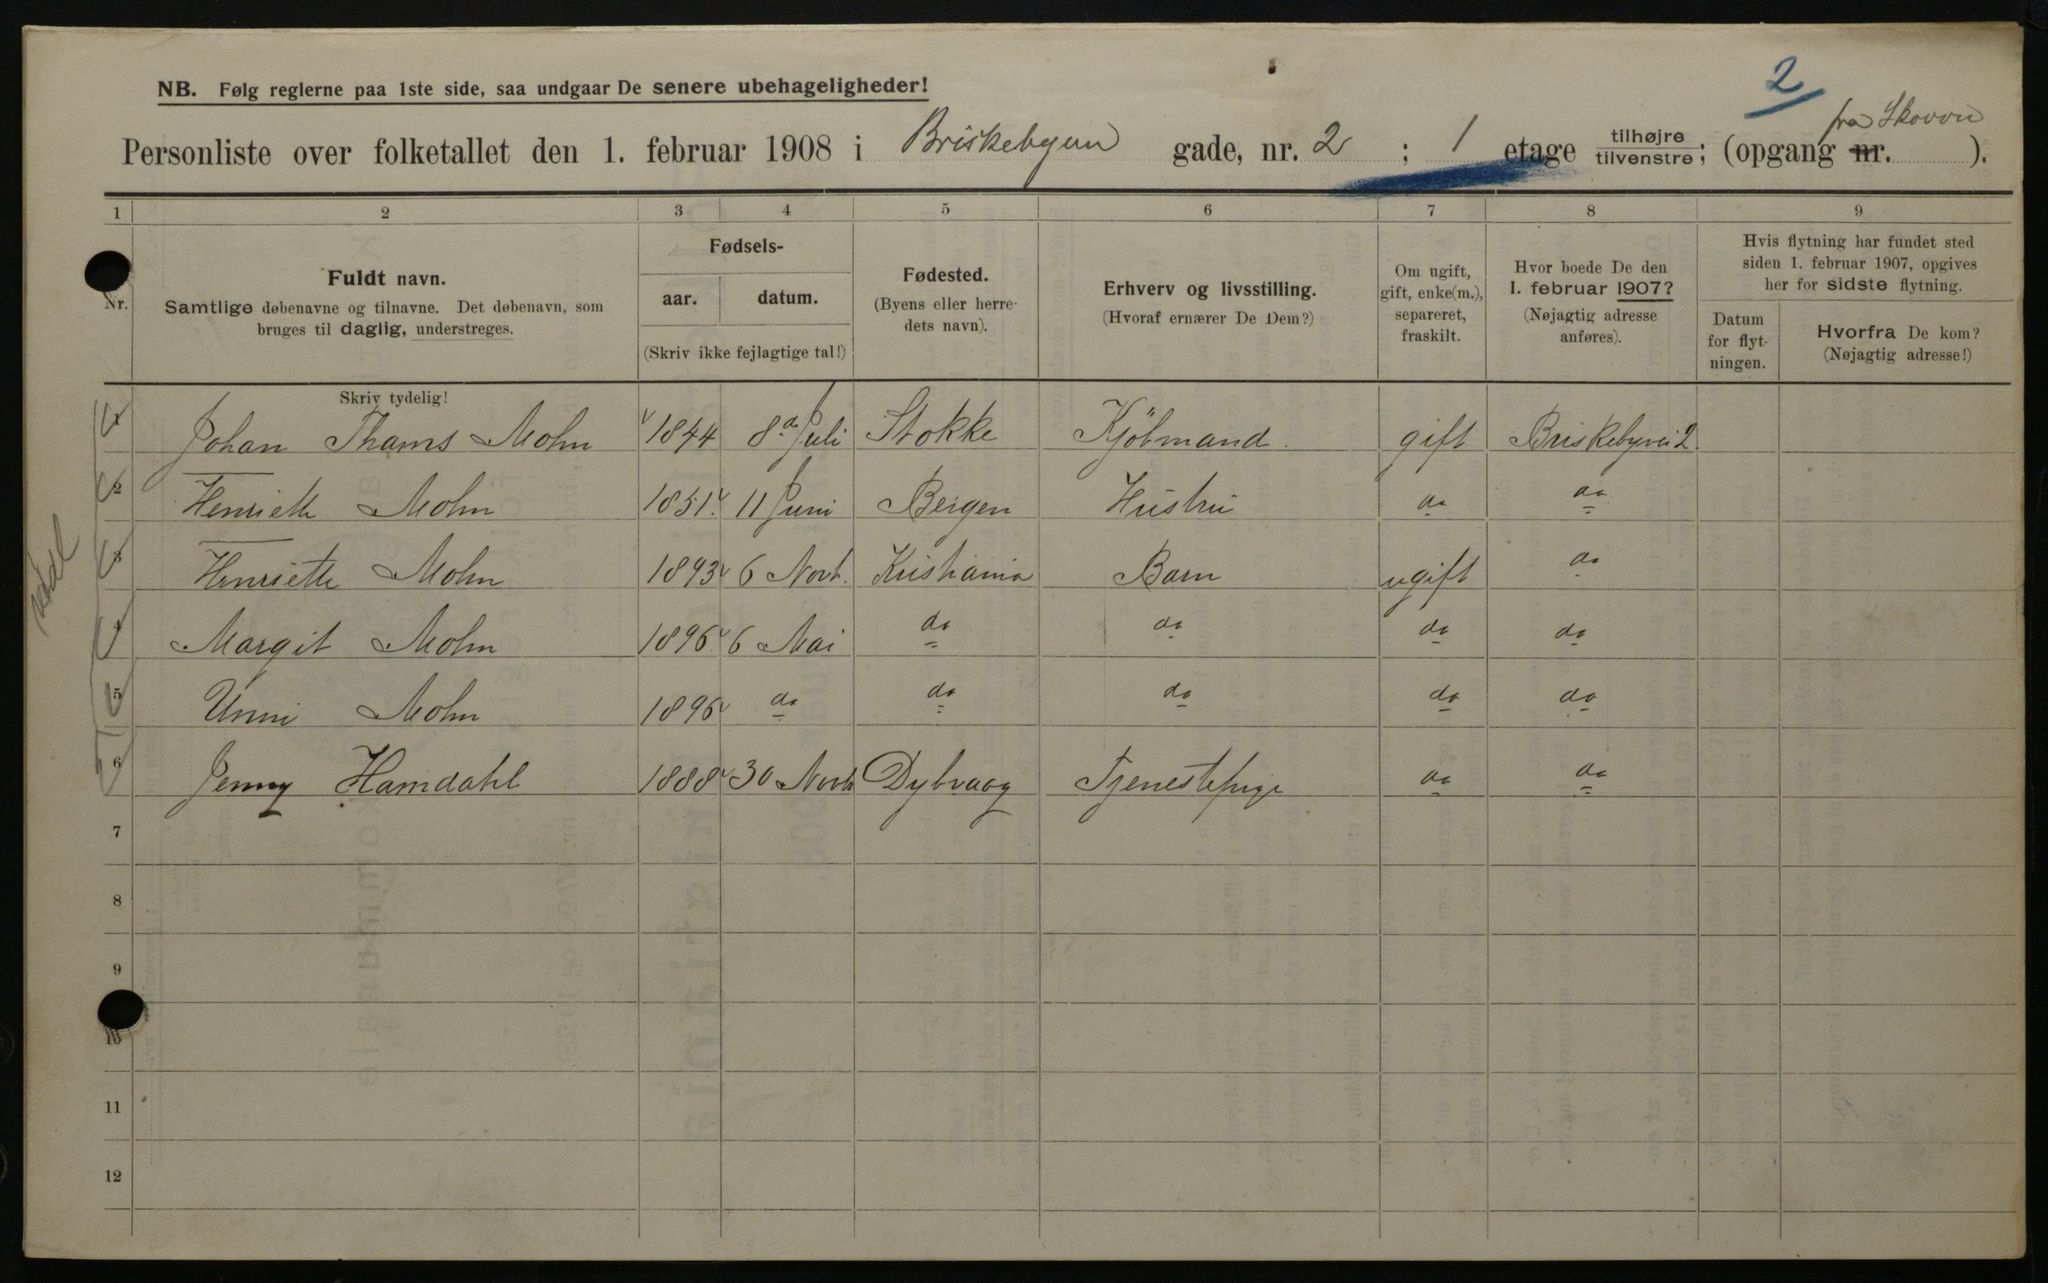 2
NB. Følg reglerne paa 1ste side, saa undgaar De senere ubehageligheder!
fra Skovvei
Personliste over folketallet den 1. februar 1908 i Briskebyveien gade, nr. 2 ; 1 etage tilhøjre tilvenstre; (opgang nr. ).
1 2 3 4 5 6 7 8 9
Nr.
Fuldt navn.
Samtlige døbenavne og tilnavne. Det døbenavn, som
bruges til daglig, understreges.
Fødsels-
aar. datum.
(Skriv ikke fejlagtige tal!)
Fødested.
(Byens eller herre-
dets navn).
Erhverv og livsstilling.
(Hvoraf ernærer De Dem?)
Om ugift,
gift, enke(m.),
separeret,
fraskilt.
Hvor boede De den
1. februar 1907?
(Nøjagtig adresse
anføres).
Hvis flytning har fundet sted
siden 1. februar 1907, opgives
her for sidste flytning.
Datum
for flyt-
ningen.
Hvorfra De kom?
(Nøjagtig adresse!)
Skriv tydelig!
1 Johan Thams Mohn 1844 8de Juli Stokke Kjöbmand. gift Briskebyvei 2.
2 Henriette Mohn 1851. 11 Juni Bergen Hustru do do
3 Henriette Mohn 1893 6 Novb. Kristiania Barn ugift do
4 Margit Mohn 1896 6 Mai do do do do
5 Unni Mohn 1896 do do do do do
6 Jenny Hamdahl 1888 30 Novb Dybvaag Tjenestepige do do
7
8
9
10
11
12